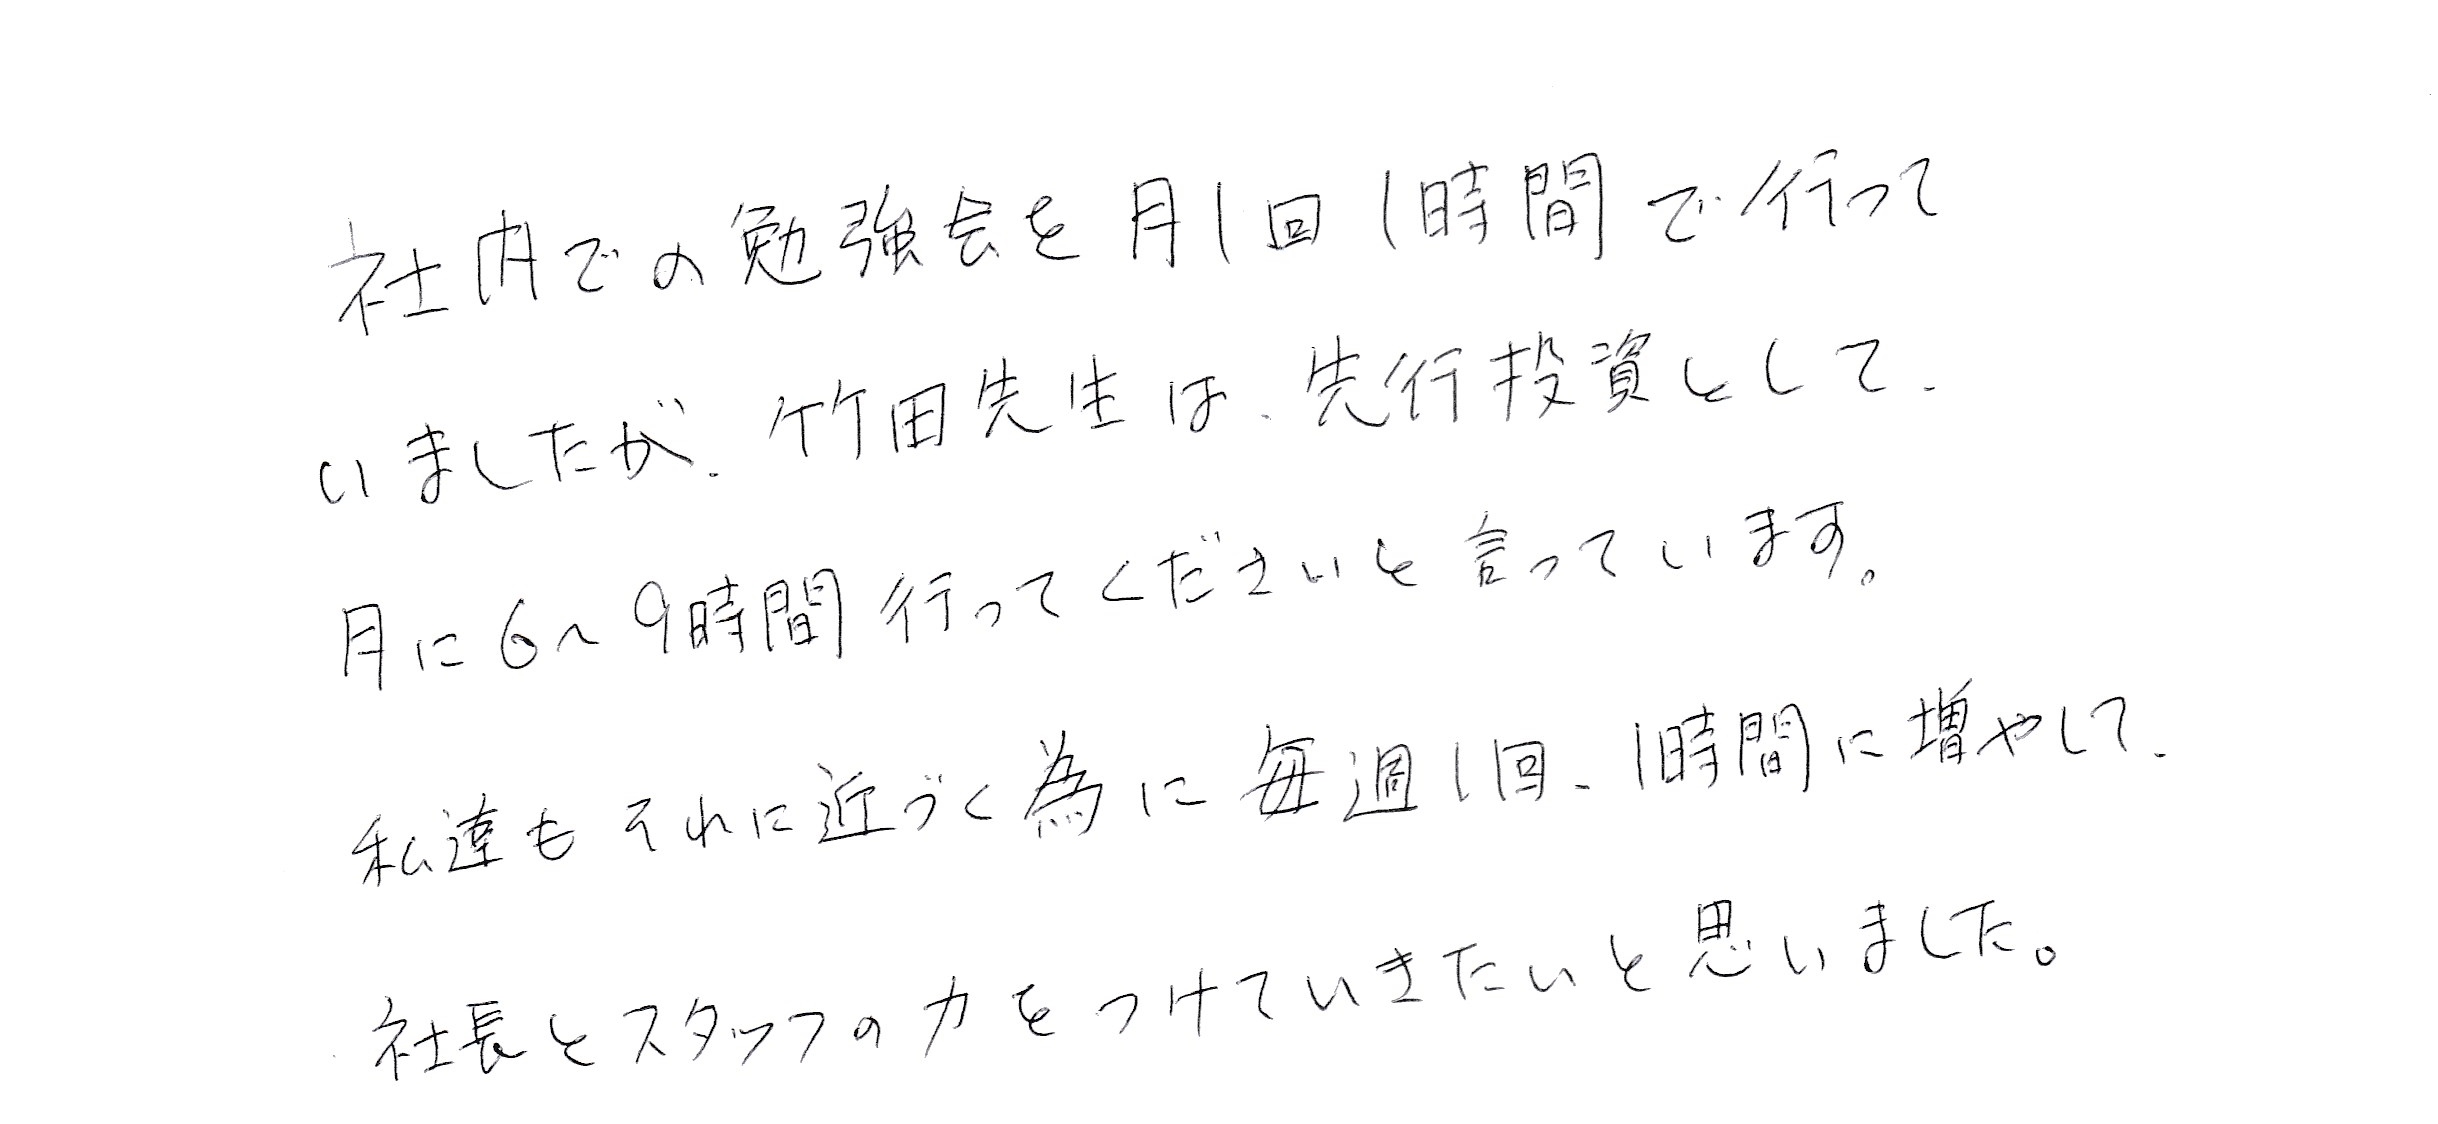 社内での勉強会を月1回1時間で行って
いましたが、竹田先生は、先行投資として、
月に6〜9時間行ってくださいと言っています。
私達もそれに近づく為に毎週1回、1時間に増やして、
社長とスタッフの力をつけていきたいと思いました。